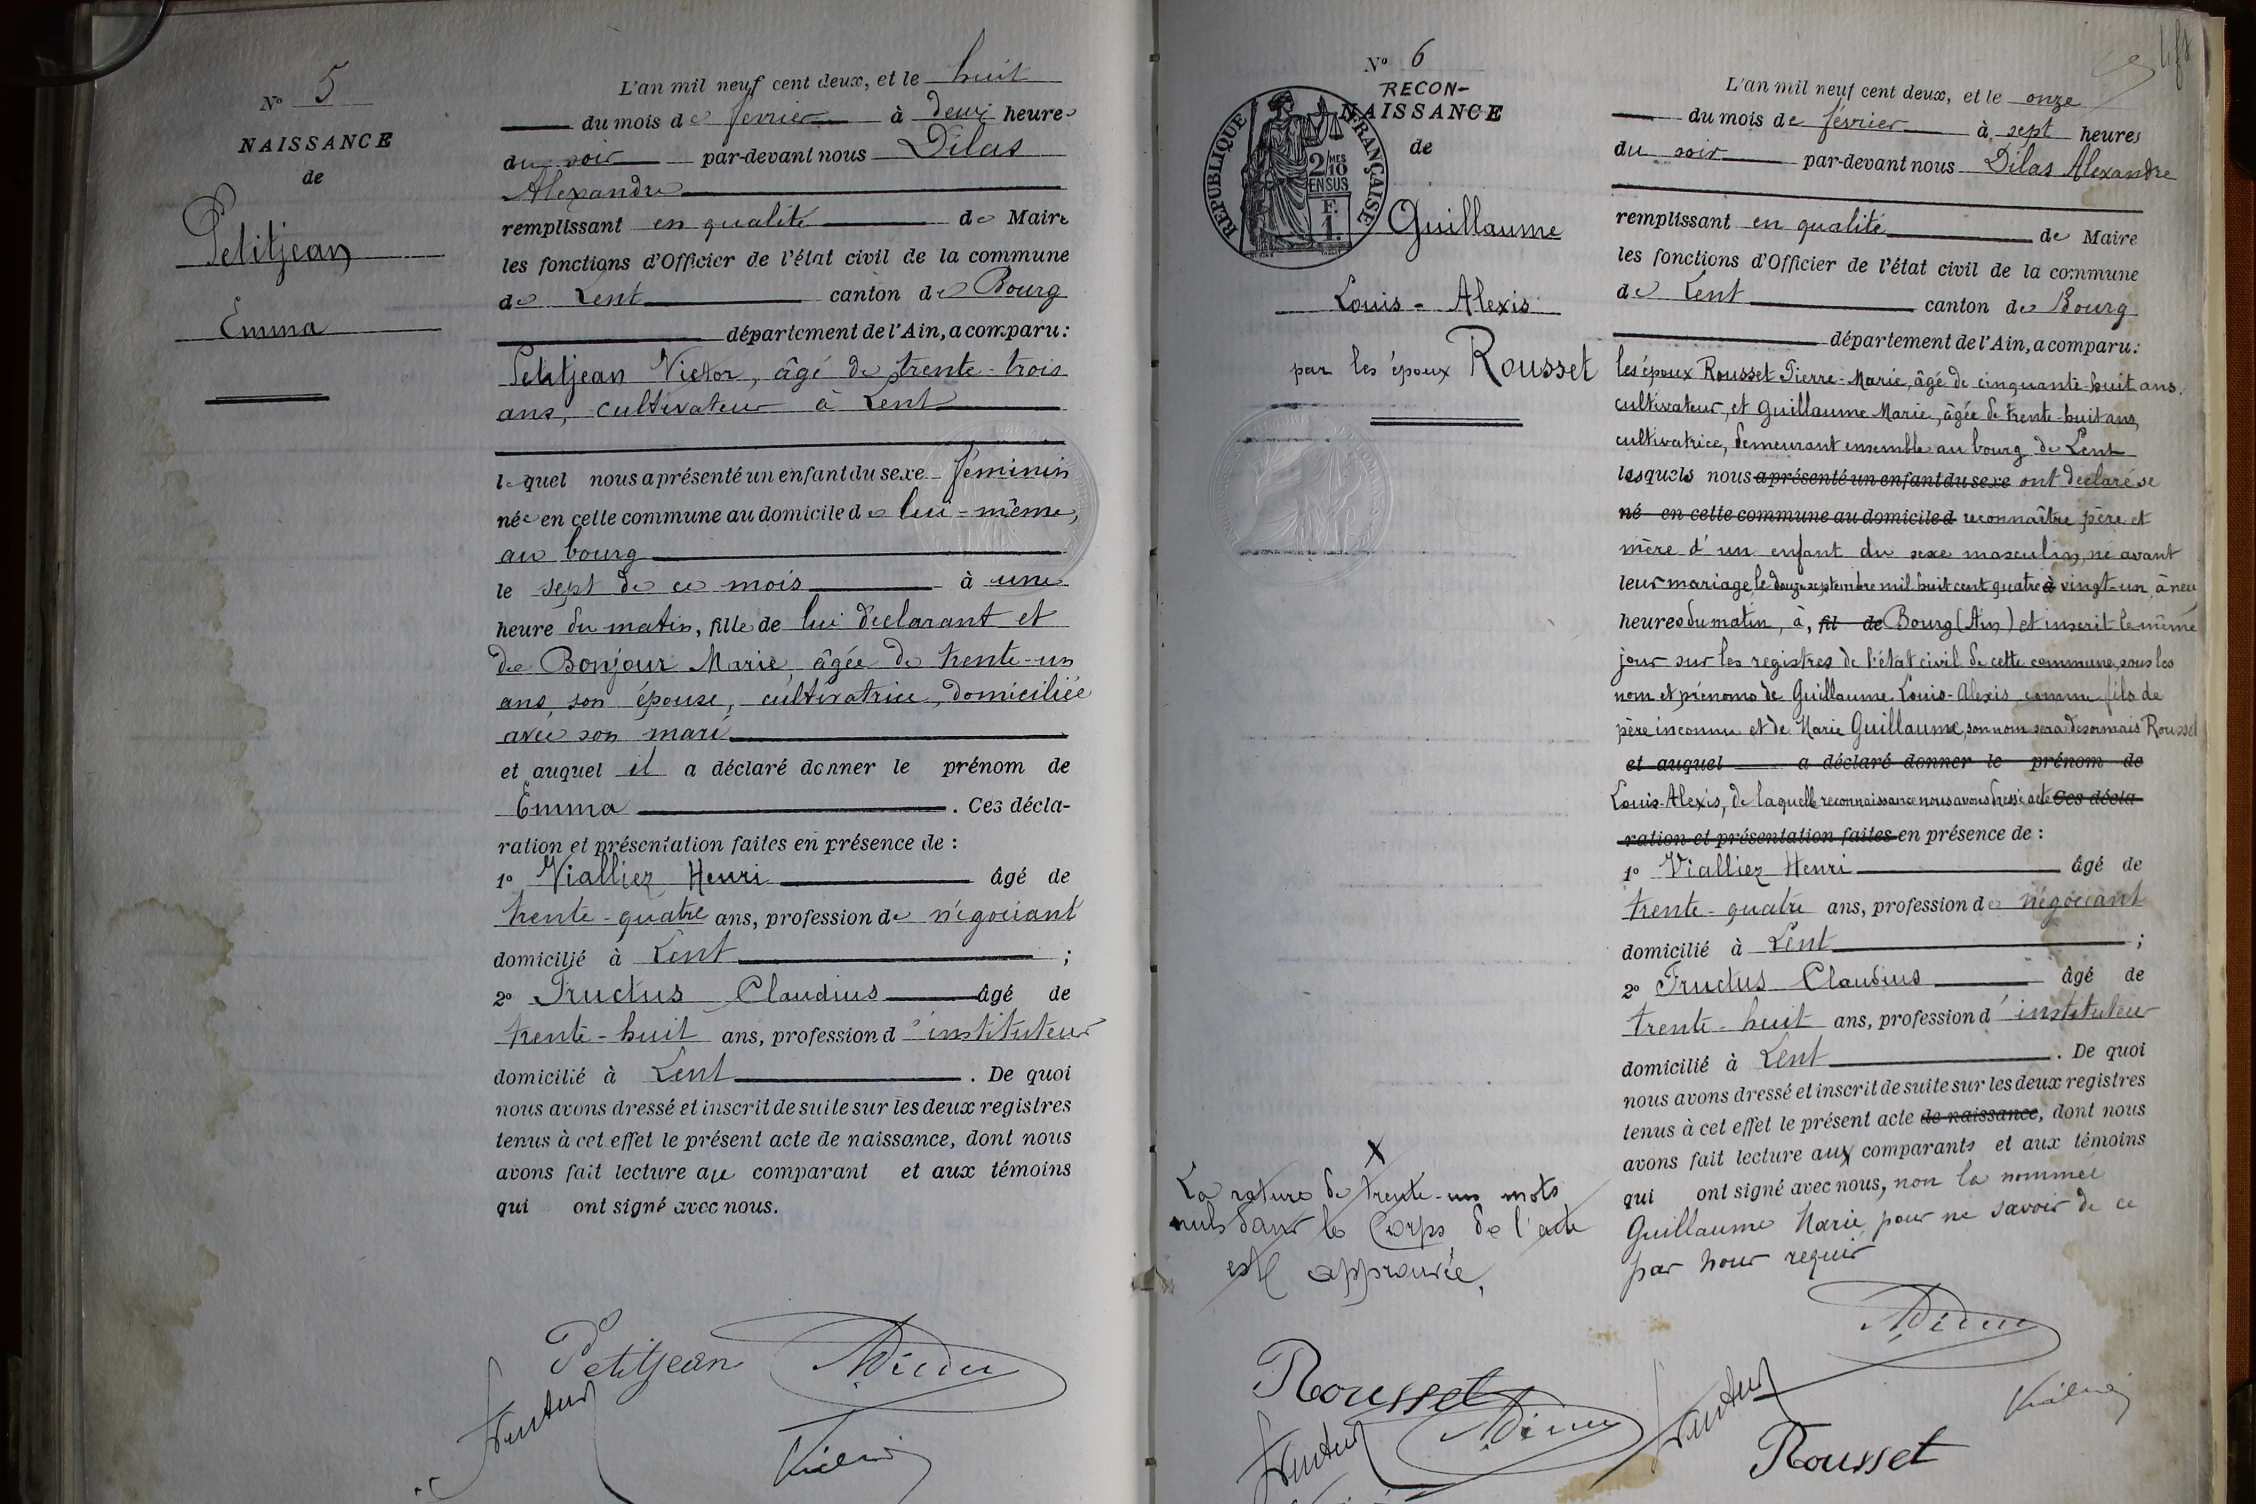 N° 5
NAISSANCE
de
Petitjean
Emma
L'an mil neuf cent deux, et le huit
du mois de février à deux heures
du soir par-devant nous Dilas
Alexandre
remplissant en qualité de Maire
les fonctions d'Officier de l'état civil de la commune
de Lent canton de Bourg
département de l'Ain, a comparu:
Petitjean Victor, âgé de trente-trois
ans, cultivateur à Lent
lequel nous a présenté un enfant du sexe féminin
née en cette commune au domicile de lui-même,
au bourg
le sept de ce mois à une
heure du matin, fille de lui déclarant et
de Bonjour Marie âgée de trente-un
ans, son épouse, cultivatrice, domiciliée
avec son mari
et auquel il a déclaré donner le prénom de
Emma. Ces décla-
ration et présentation faites en présence de :
1° Vialliez Henri âgé de
trente-quatre ans, profession de négociant
domicilié à Lent ;
2° Fructus Claudius âgé de
trente-huit ans, profession d'instituteur
domicilié à Lent. De quoi
nous avons dressé et inscrit de suite sur les deux registres
tenus à cet effet le présent acte de naissance, dont nous
avons fait lecture au comparant et aux témoins
qui ont signé avec nous.
Petitjean
N° 6
RECON-
NAISSANCE
de
RÉPUBLIQUE FRANÇAISE
2/10
EN SUS
F.
1.
Guillaume
Louis-Alexis
par les époux Rousset
L'an mil neuf cent deux, et le onze
du mois de février à sept heures
du soir par-devant nous Dilas Alexandre
remplissant en qualité de Maire
les fonctions d'Officier de l'état civil de la commune
de Lent canton de Bourg
département de l'Ain, a comparu:
les époux Rousset Pierre-Marie, âgé de cinquante-huit ans,
cultivateur, et Guillaume Marie, âgée de trente-huit ans,
cultivatrice, demeurant ensemble au bourg de Lent
lesquels nous a présenté un enfant du sexe ont déclaré se
né en cette commune au domicile d reconnaître père et
mère d'un enfant du sexe masculin, né avant
leur mariage, le douze septembre mil huit cent quatre à vingt-un, à neuf
heures du matin, à, fil de Bourg (Ain) et inscrit le même
jour sur les registres de l'état civil de cette commune, sous les
nom et prénoms de Guillaume Louis-Alexis comme fils de
père inconnu et de Marie Guillaume, son nom sera désormais Rousset
et auquel a déclaré donner le prénom de
Louis-Alexis, de laquelle reconnaissance nous avons dressé acte Ces décla-
ration et présentation faites en présence de :
1° Vialliez Henri âgé de
trente-quatre ans, profession de négociant
domicilié à Lent ;
2° Fructus Claudius âgé de
trente-huit ans, profession d'instituteur
domicilié à Lent. De quoi
nous avons dressé et inscrit de suite sur les deux registres
tenus à cet effet le présent acte de naissance, dont nous
avons fait lecture aux comparants et aux témoins
qui ont signé avec nous, non la nommée
Guillaume Marie pour ne savoir de ce
par nous requis
X
La rature de trente-un mots
nuls dans le Corps de l'acte
est approuvée,
Rousset
Rousset